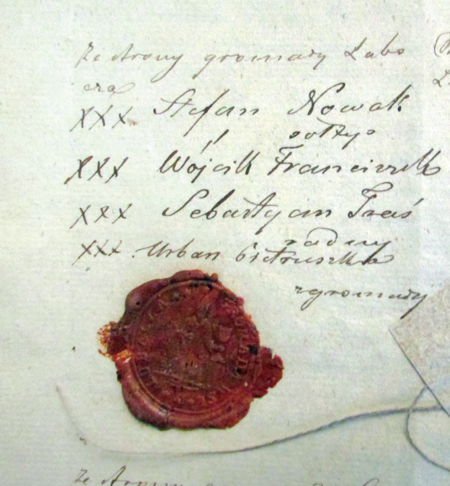 Ze strony gromady Labo
cza
XXX Stefan Nowak
sołtys
XXX Wójcik Franciszek
XXX Sebastyan Traś
radny
XXX Urban Pietruszka
z gromady